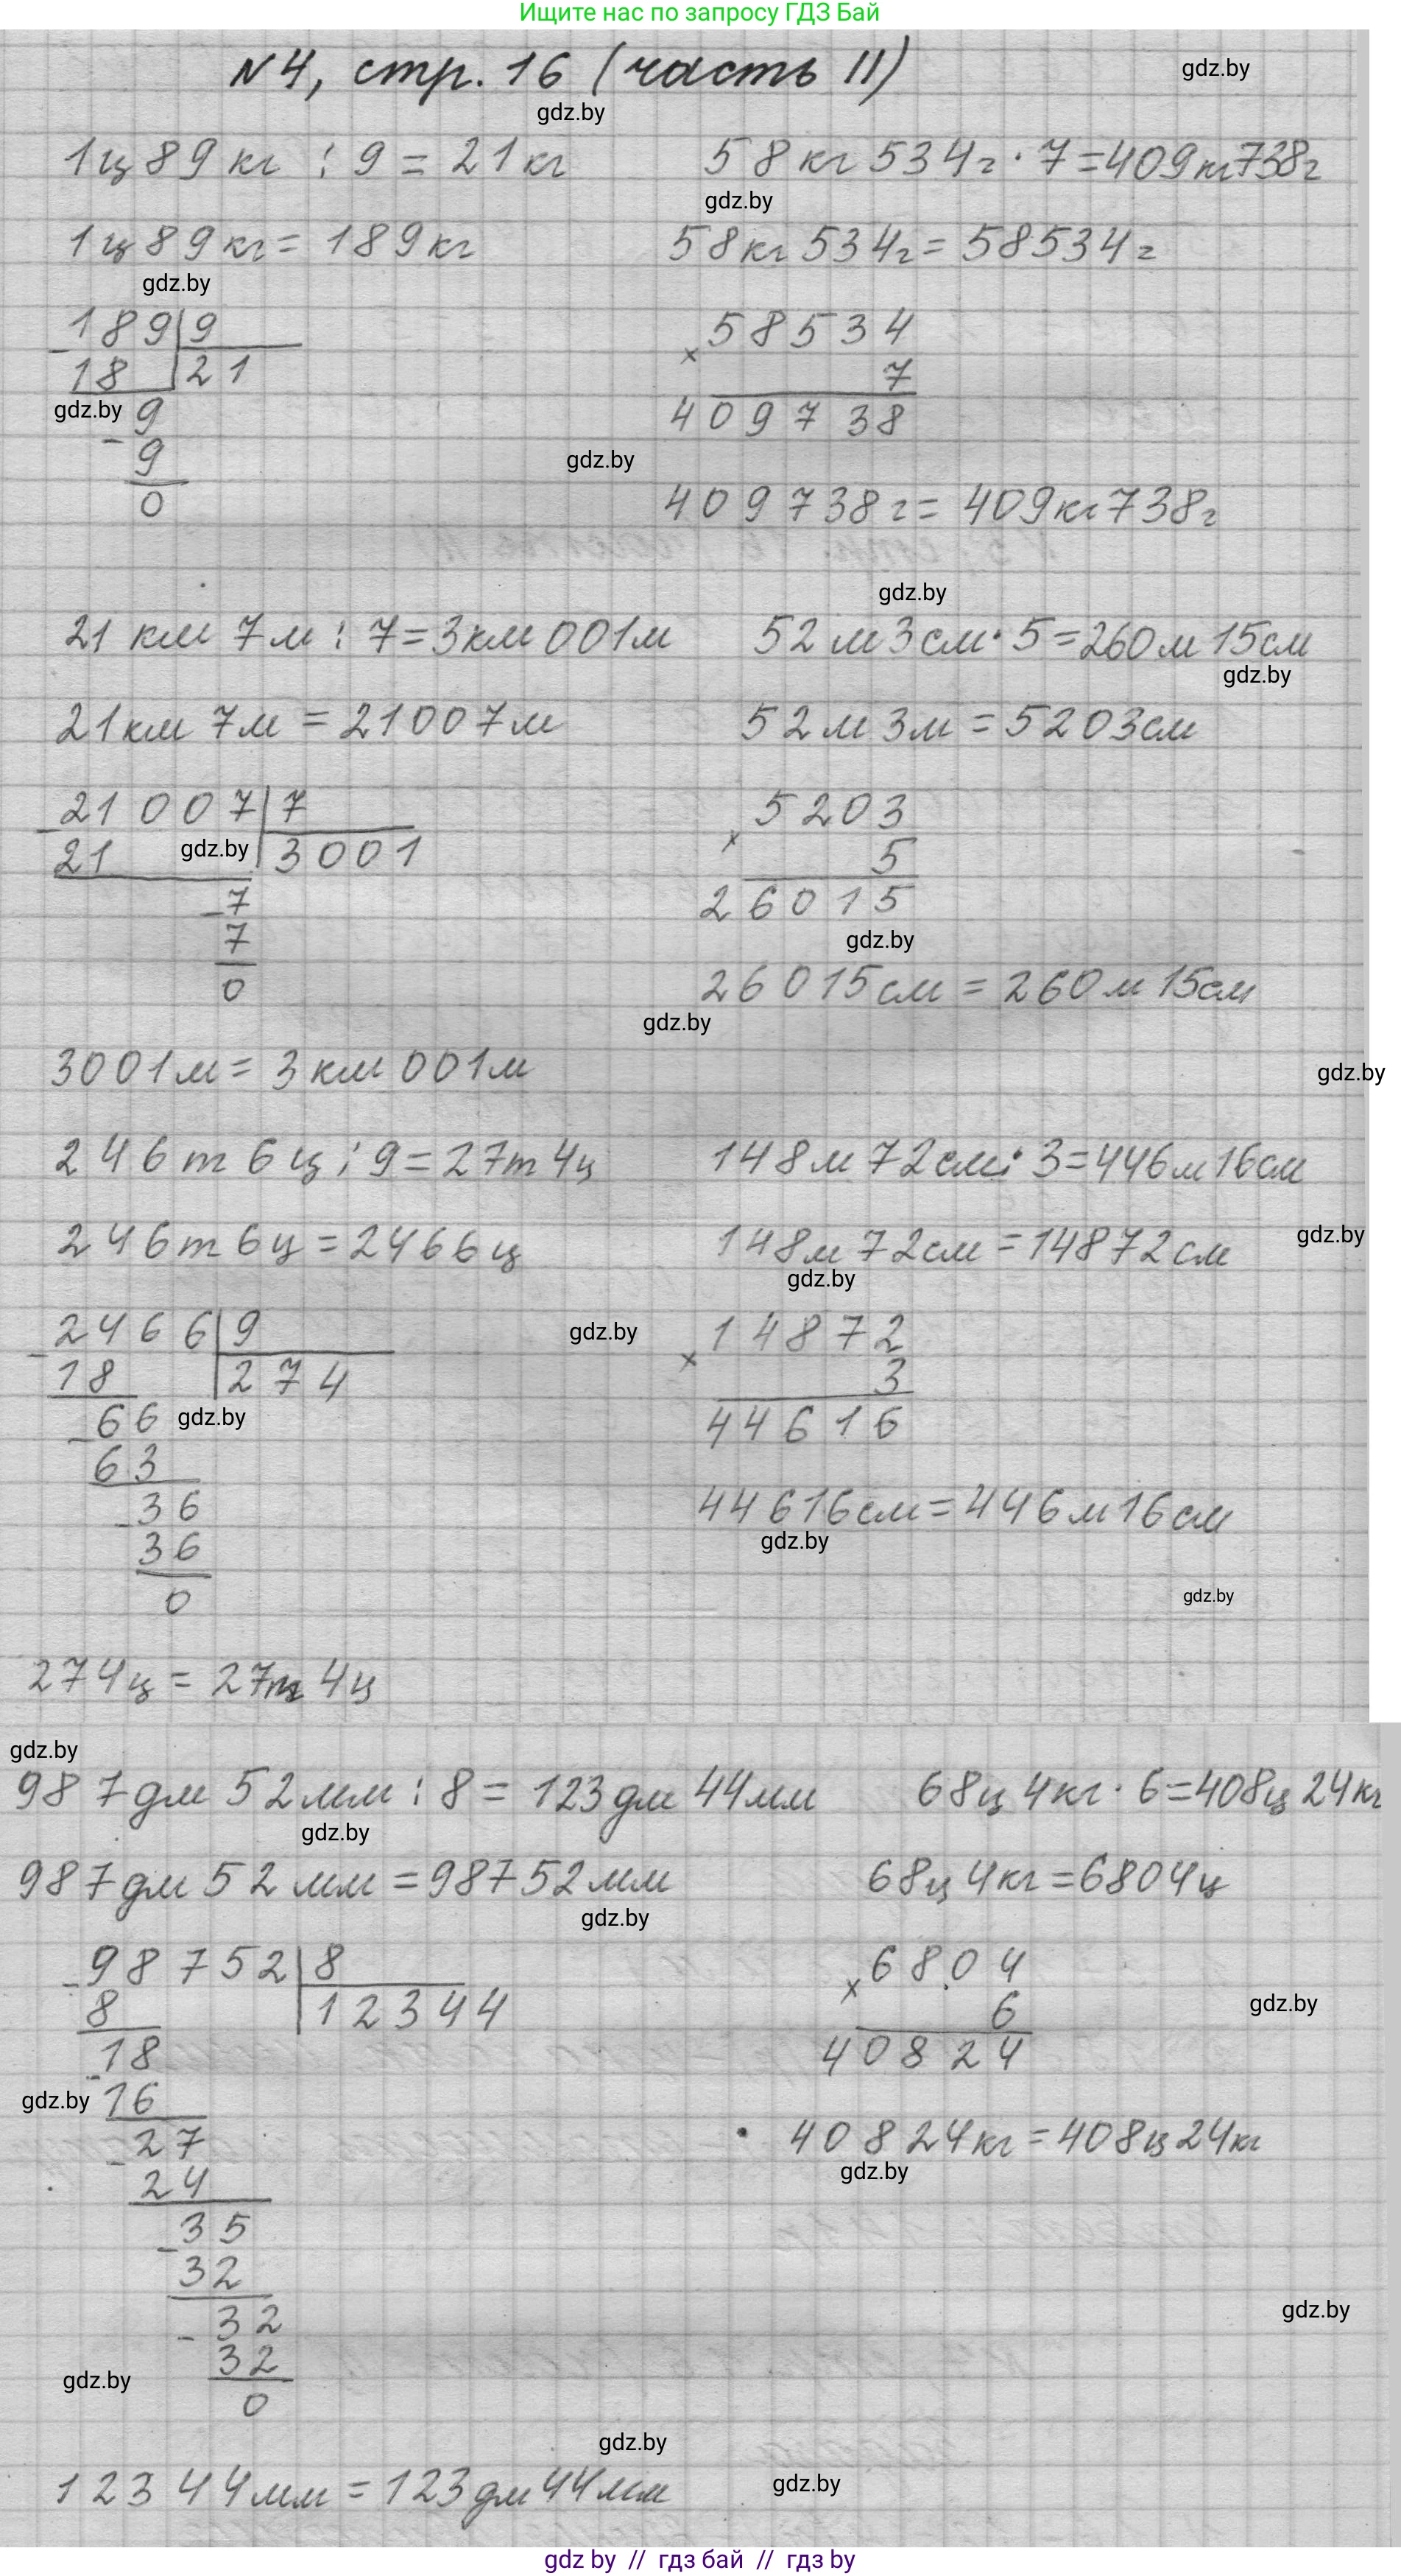 Ищите нас по запросу ГДЗ Бай
N4, стр. 16 (часть II)
gdz.by
gdz.by
1ц 89 кг : 9 = 21 кг
58 кг 534 г · 7 = 409 кг 738 г
gdz.by
1ц 89 кг = 189 кг
58 кг 534 г = 58534 г
gdz.by
189 | 9
- 18 | 21
gdz.by
9
- 9
0
58534
× 7
409738
gdz.by
409738 г = 409 кг 738 г
gdz.by
21 км 7 м : 7 = 3 км 001 м
52 м 3 см · 5 = 260 м 15 см
gdz.by
21 км 7 м = 21007 м
52 м 3 м = 5203 см
21007 | 7
- 21 | 3001
gdz.by
- 7
7
0
5203
× 5
26015
gdz.by
26015 см = 260 м 15 см
gdz.by
3001 м = 3 км 001 м
gdz.by
246 т 6 ц : 9 = 27 т 4 ц
148 м 72 см · 3 = 446 м 16 см
gdz.by
246 т 6 ц = 2466 ц
148 м 72 см = 14872 см
gdz.by
2466 | 9
- 18 | 274
- 66
gdz.by
63
- 36
36
0
gdz.by
14872
× 3
44616
44616 см = 446 м 16 см
gdz.by
gdz.by
274 ц = 27 т 4 ц
gdz.by
987 дм 52 мм : 8 = 123 дм 44 мм
68 ц 4 кг · 6 = 408 ц 24 кг
gdz.by
987 дм 52 мм = 98752 мм
68 ц 4 кг = 6804 ц
gdz.by
98752 | 8
- 8 | 12344
18
gdz.by
- 16
- 27
24
- 35
32
- 32
32
gdz.by
0
6804
× 6
gdz.by
40824
40824 кг = 408 ц 24 кг
gdz.by
gdz.by
gdz.by
12344 мм = 123 дм 44 мм
gdz.by
gdz by // гдз бай // гдз by